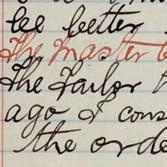 be better
The Master
The Tailor
ago I cons
the orde